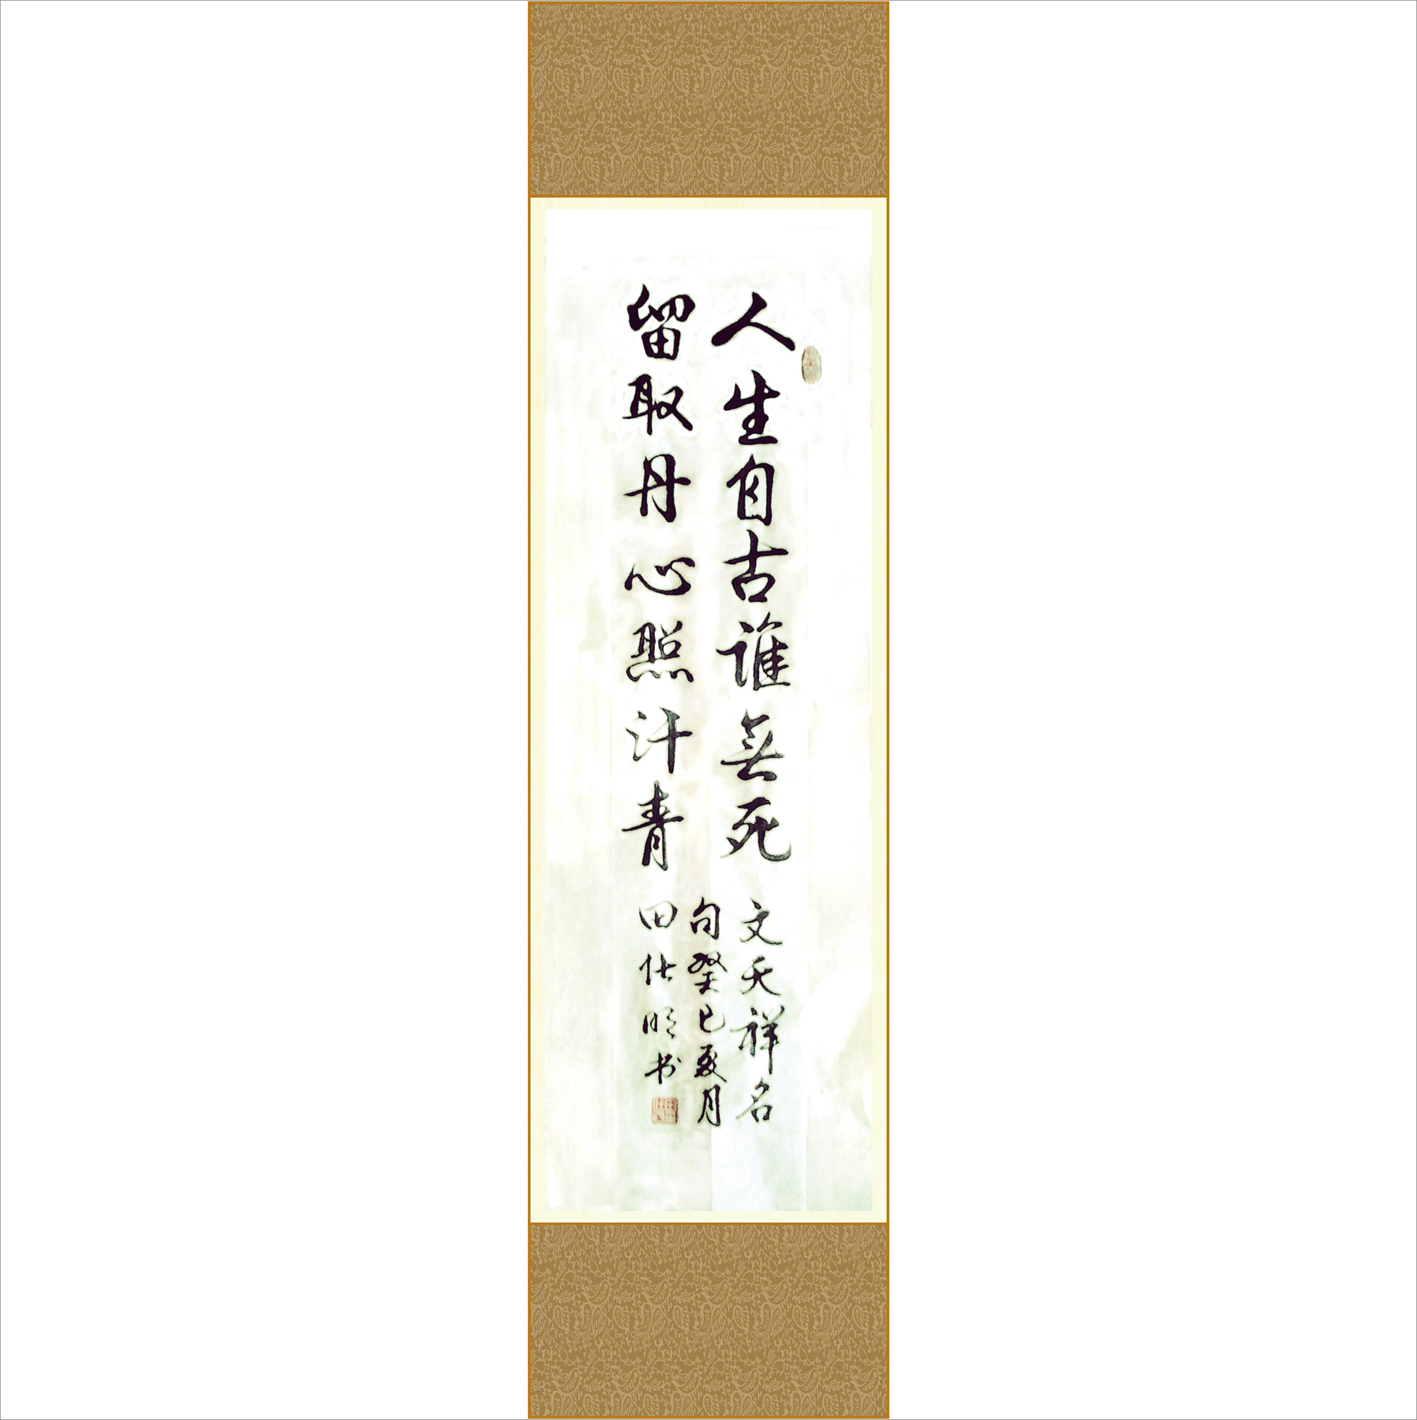 人生自古谁無死
留取丹心照汗青
文天祥名
句癸巳夏月
田仕明书